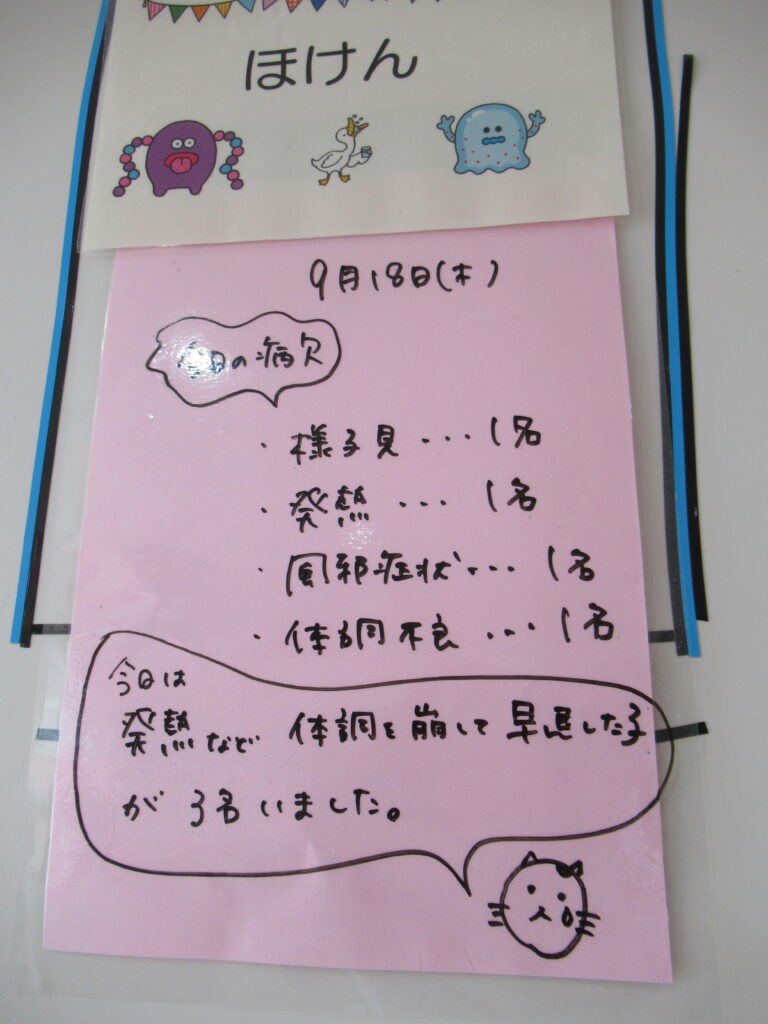 ほけん
9月18日(木)
今日の病欠
・様子見...1名
・発熱...1名
・風邪症状...1名
・体調不良...1名
今日は
発熱など 体調を崩して早退した子
が 3名いました。